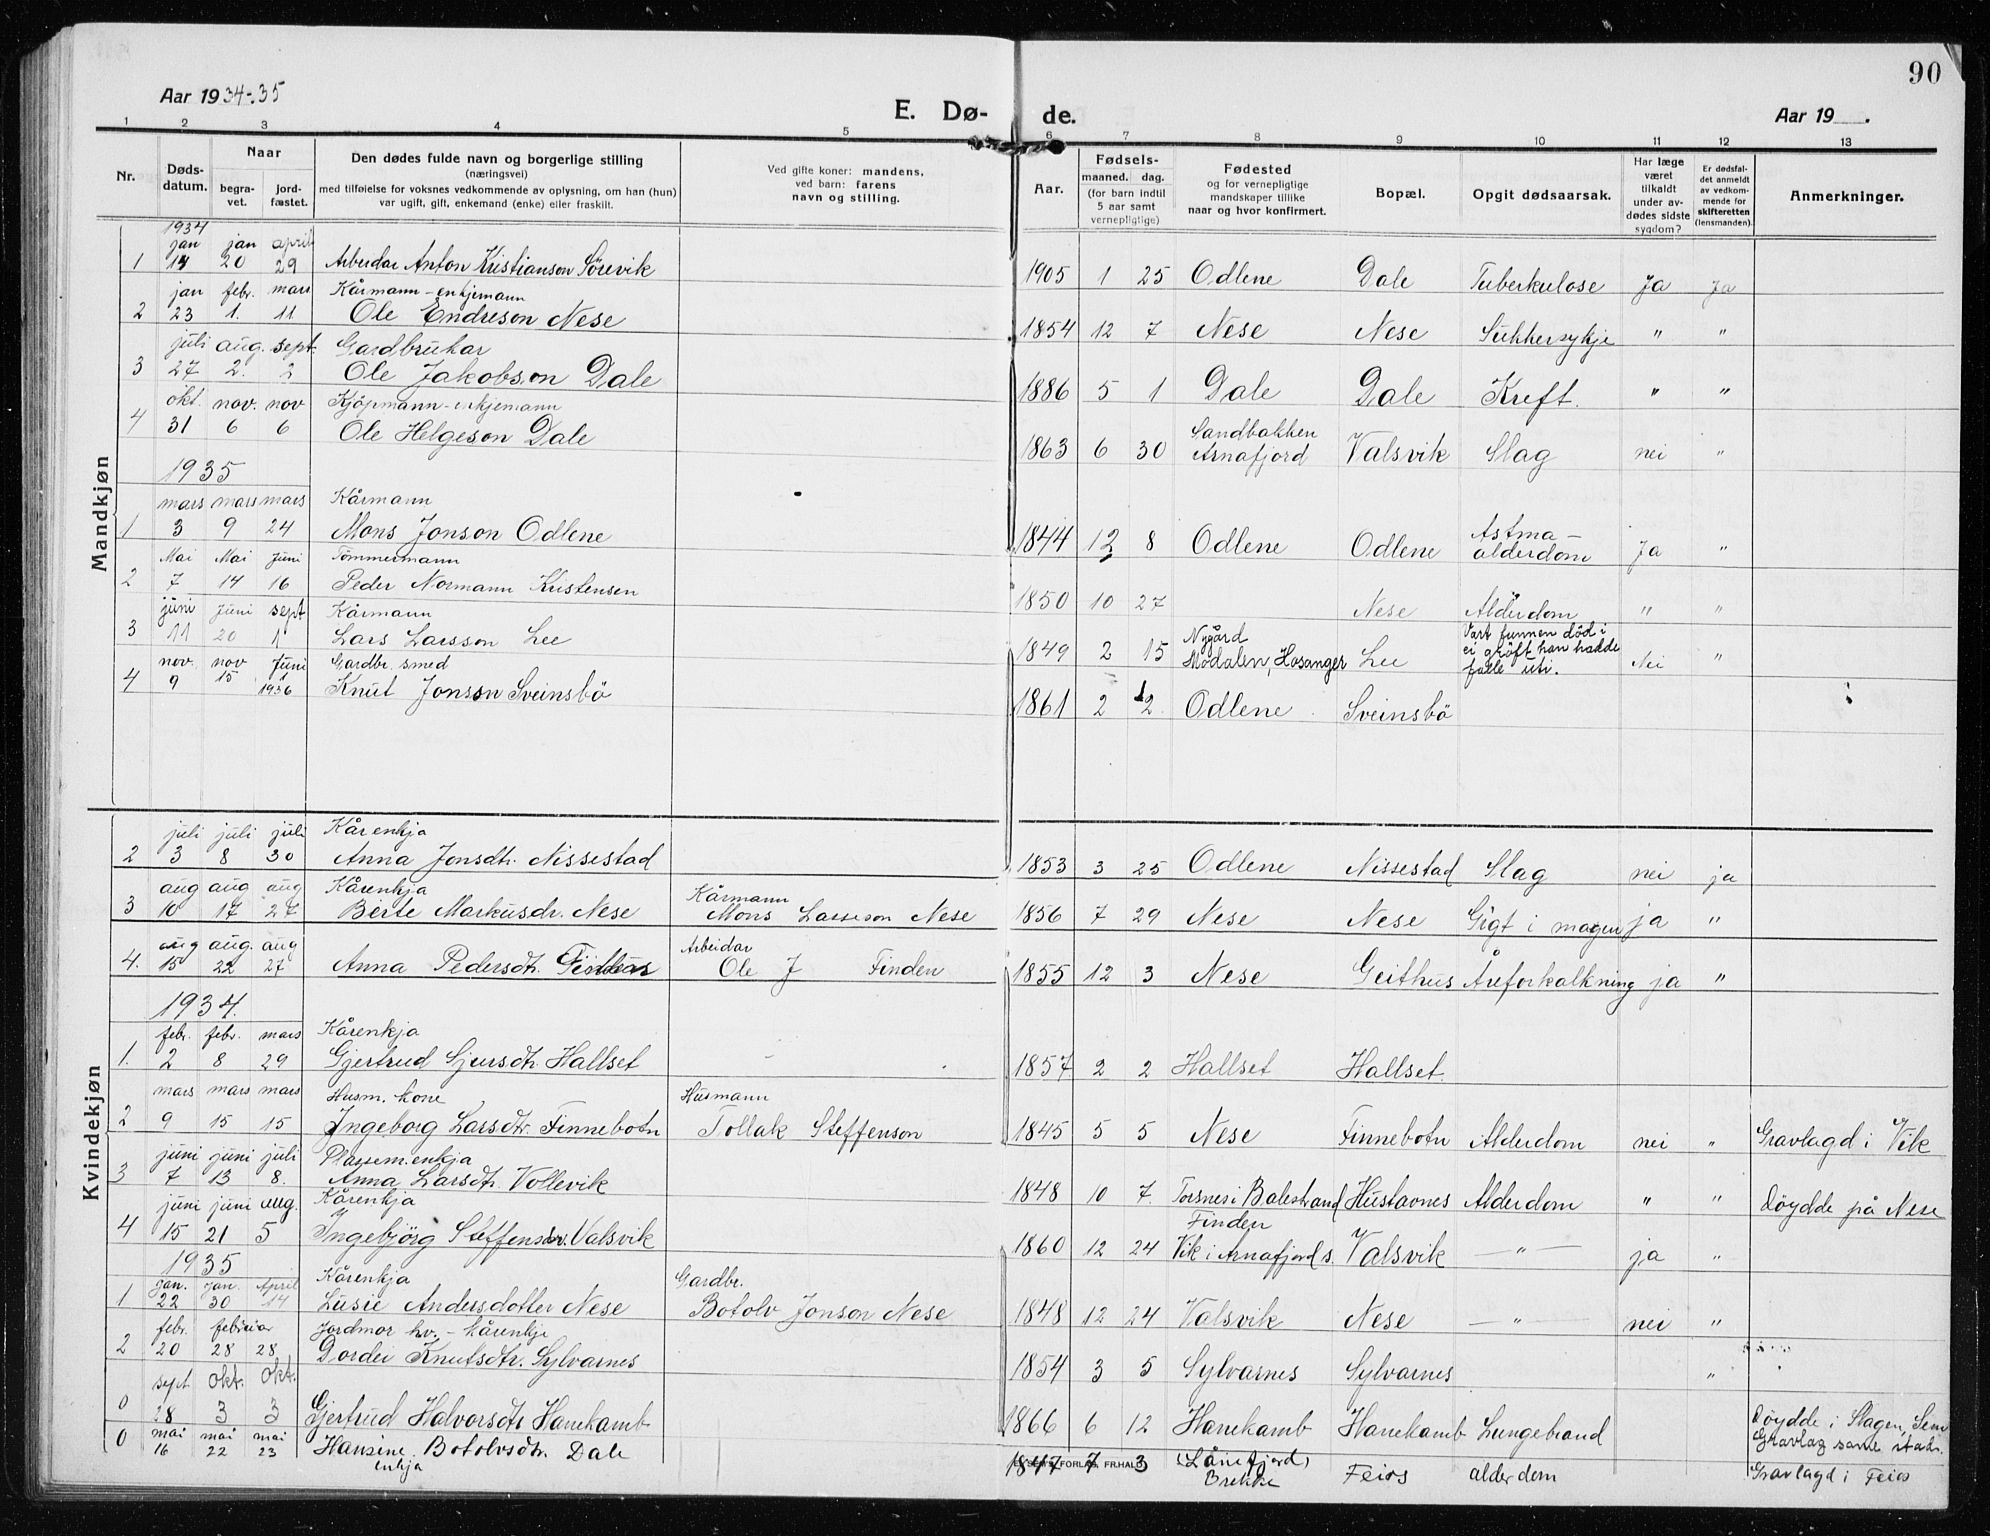 90
Aar 1934-35
E. Dø-
de.
Aar 19 .
1 2 3 4 5 6 7 8 9 10 11 12 13
Nr.
Døds-
datum.
Naar
begra-
vet.
jord-
fæstet.
Den dødes fulde navn og borgerlige stilling
(næringsvei)
med tilføielse for voksnes vedkommende av oplysning, om han (hun)
var ugift, gift, enkemand (enke) eller fraskilt.
Ved gifte koner: mandens,
ved barn: farens
navn og stilling.
Aar.
Fødsels-
maaned. dag.
(for barn indtil
5 aar samt
vernepligtige)
Fødested
og for vernepligtige
mandskaper tillike
naar og hvor konfirmert.
Bopæl.
Opgit dødsaarsak.
Har læge
været
tilkaldt
under av-
dødes sidste
sygdom?
Er dødsfal-
det anmeldt
av vedkom-
mende for
skifteretten
(lensmanden).
Anmerkninger.
Mandkjøn
1934
jan jan april
1 14 20 29 Arbeidar Anton Kristianson Sörevik 1905 1 25 Odlene Dale Tuberkulose Ja Ja
jan febr. mars Kårmann - enkjemann
2 23 1. 11 Ole Endreson Nese 1854 12 7 Nese Nese Sukkersykje " "
juli aug. sept. Gardbrukar
3 27 2. 2 Ole Jakobson Dale 1886 5 1 Dale Dale Kreft. " "
okt. nov. nov Kjöpmann - enkjemann
4 31 6 6 Ole Helgeson Dale 1863 6 30 Sandbakken
Arnafjord Valsvik Slag nei "
1935
mars mars mars Kårmann
1 3 9 24 Mons Jonson Odlene 1844 12 8 Odlene Odlene Astma -
alderdom Ja "
Mai Mai Juni Tömmermann
2 7 14 16 Peder Normann Kristensen 1850 10 27 Nese Alderdom " "
juni Juni sept Kårmann
3 11 20 1 Lars Larsson Lee 1849 2 15 Nygård
Modalen, Hosanger Lee Vart funnen död i
ei gröft han hadde
falle uti. Nei "
nov. nov Juni Gardbr. smed
4 9 15 1
1936 Knut Jonson Sveinsbö 1861 2 12 Odlene Sveinsbö
Kvindekjøn
juli juli juli Kårenkja
2 3 8 30 Anna Jonsdtr. Nissestad 1853 3 25 Odlene Nissestad Slag nei ja
aug aug aug Kårenkja Kårmann
3 10 17 27 Berte Markusdr. Nese Mons Lasseson Nese 1856 7 29 Nese Nese Gigt i magen ja "
aug aug. aug Arbeidar
4. 15 22 27 Anna Pedersdtr. Ole J Finden 1855 12 3 Nese Geithus Åreforkalkning ja "
1934.
febr. febr. mars Kårenkja
1. 2 8 29 Gjertrud Sjursdtr. Hallset 1857 2 2 Hallset Hallset.
mars mars mars Husm. kone Husmann
2 9 15 15 Ingeborg Larsdtr. Finnebotn Tollak Steffenson 1845 5 5 Nese Finnebotn Alderdom nei " Gravlagd i Vik
juni juni juli Plassem. enkja
3 7 13 8. Anna Larsdtr. Vollevik 1848 10 7 Torsnes i Balestrand Hustavnes Alderdom " " Döydde på Nese
juni juni aug. Kårenkja
4 15 21 5 Ingebjörg Steffensdr. Valsvik 1860 12 24 Finden
Vik i Arnafjord s. Valsvik - " - ja "
1935
Jan. jan. April Kårenkja Gardbr.
1 22 30 14 Lusie Andersdotter Nese Botolv Jonson Nese 1848 12 24 Valsvik Nese - " - nei "
febr. februar Jordmor hv. - kårenkje
2 20 28 28 Dordei Knutsdtr. Sylvarnes 1854 3 5 Sylvarnes Sylvarnes "
sept Okt. Okt.
0 28 3 3 Gjertrud Halvorsdtr Hanekamb 1866 6 12 Hanekamb Hanekamb Lungebrand Döydde i Slagen, Sem
Gravlag same stad.
mai mai mai
0 16 22 23 Hansine Botolvsdtr. Dale
enkja 1847 7 3 (Lånefjord)
Brekke Feios alderdom Gravlagd i Feios
FORLAG, FR.HALD